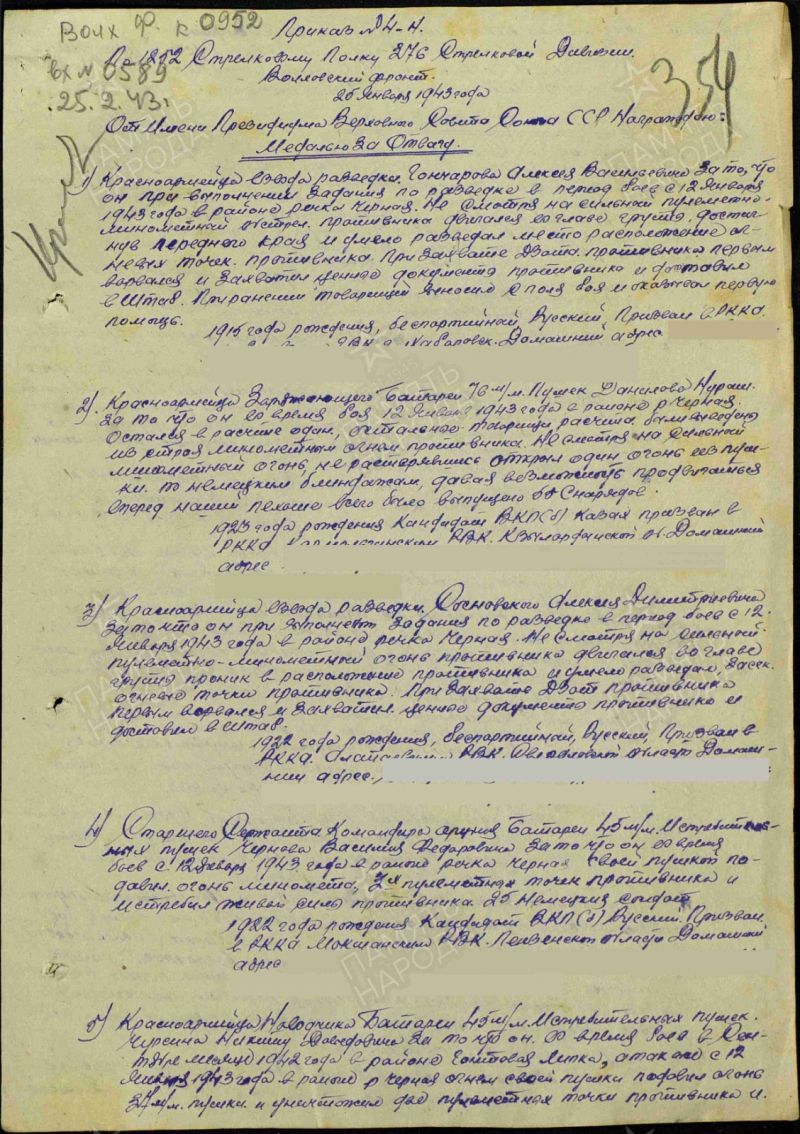 Волх ф. к 0952
Приказ № 4-Н.
вх № 0589
По 1252 Стрелковому Полку 276 Стрелковой Дивизии.
Волховский фронт.
25.2.43г
26 Января 1943 года
354
От Имени Президиума Верховного Совета Союза ССР Награждаю:
Медалью За Отвагу.
1) Красноармейца взвода разведки Гончарова Алексея Васильевича За то, что
он при выполнении задания по разведке в период боев с 12 Января
1943 года в районе речка Черная. Не смотря на сильный пулеметно-
минометный обстрел противника двигался во главе группы, достиг-
нув переднего края и умело разведал место расположение ог-
невых точек противника. При Захвате Дзота противника первым
ворвался и Захватил ценные документы противника и доставил
в Штаб. При ранении товарищей выносил с поля боя и оказывал первую
помощь.
1915 года рождения, беспартийный, Русский, Призван в РККА
РВК г Хабаровск. Домашний адрес
2). Красноармейца Заряжающего Батареи 76 м/м. Пушек Данилова
За то что он во время боя 12 Января 1943 года в районе р Черная.
Остался в расчете один, остальные товарищи расчета были выведены
из строя минометным огнем противника. Не смотря на сильный
минометный огонь, не растерявшись открыл один огонь из пуш-
ки. по немецким блиндажам, давая возможность продвигаться
вперед нашей пехоте всего было выпущено 60 Снарядов.
1923 года рождения Кандидат ВКП(б) Казах призван в
РККА РВК. Кзылординской об. Домашний
адрес
3) Красноармейца взвода разведки. Сосновского Алексея Димитриевича
За то что он при выполнении Задания по разведке в период боев с 12
Января 1943 года в районе речка Черная. Не смотря на сильный
пулеметно-минометный огонь противника двигался во главе
группы проник в расположение противника и умело разведал, засек
огневые точки противника. При Захвате Дзот противника
первым ворвался и Захватил ценные документы противника и
доставил в Штаб.
1922 года рождения, беспартийный, Русский, Призван в
РККА. РВК. области Домаш-
ний адрес.
4) Старшего Сержанта Командира орудия Батареи 45 м/м. Истребитель-
ных пушек Чернова Василия Федоровича За то что он во время
боев с 12 Января 1943 года в районе речка Черная своей пушкой по-
давил огонь миномета, 2х пулеметных точек противника и
истребил живой силы противника 25 Немецких солдат
1922 года рождения Кандидат ВКП(б) Русский. Призван
в РККА Мокшанским РВК. Пензенской области Домашний
адрес
5) Красноармейца Наводчика Батареи 45 м/м. Истребительных пушек.
Никиту Давидовича За то что он во время боев в Сен-
тябре месяце 1942 года в районе а также с 12
Января 1943 года в районе р Черная огнем своей пушки подавил огонь
37 м/м. пушки и уничтожил две пулеметных точки противника и.